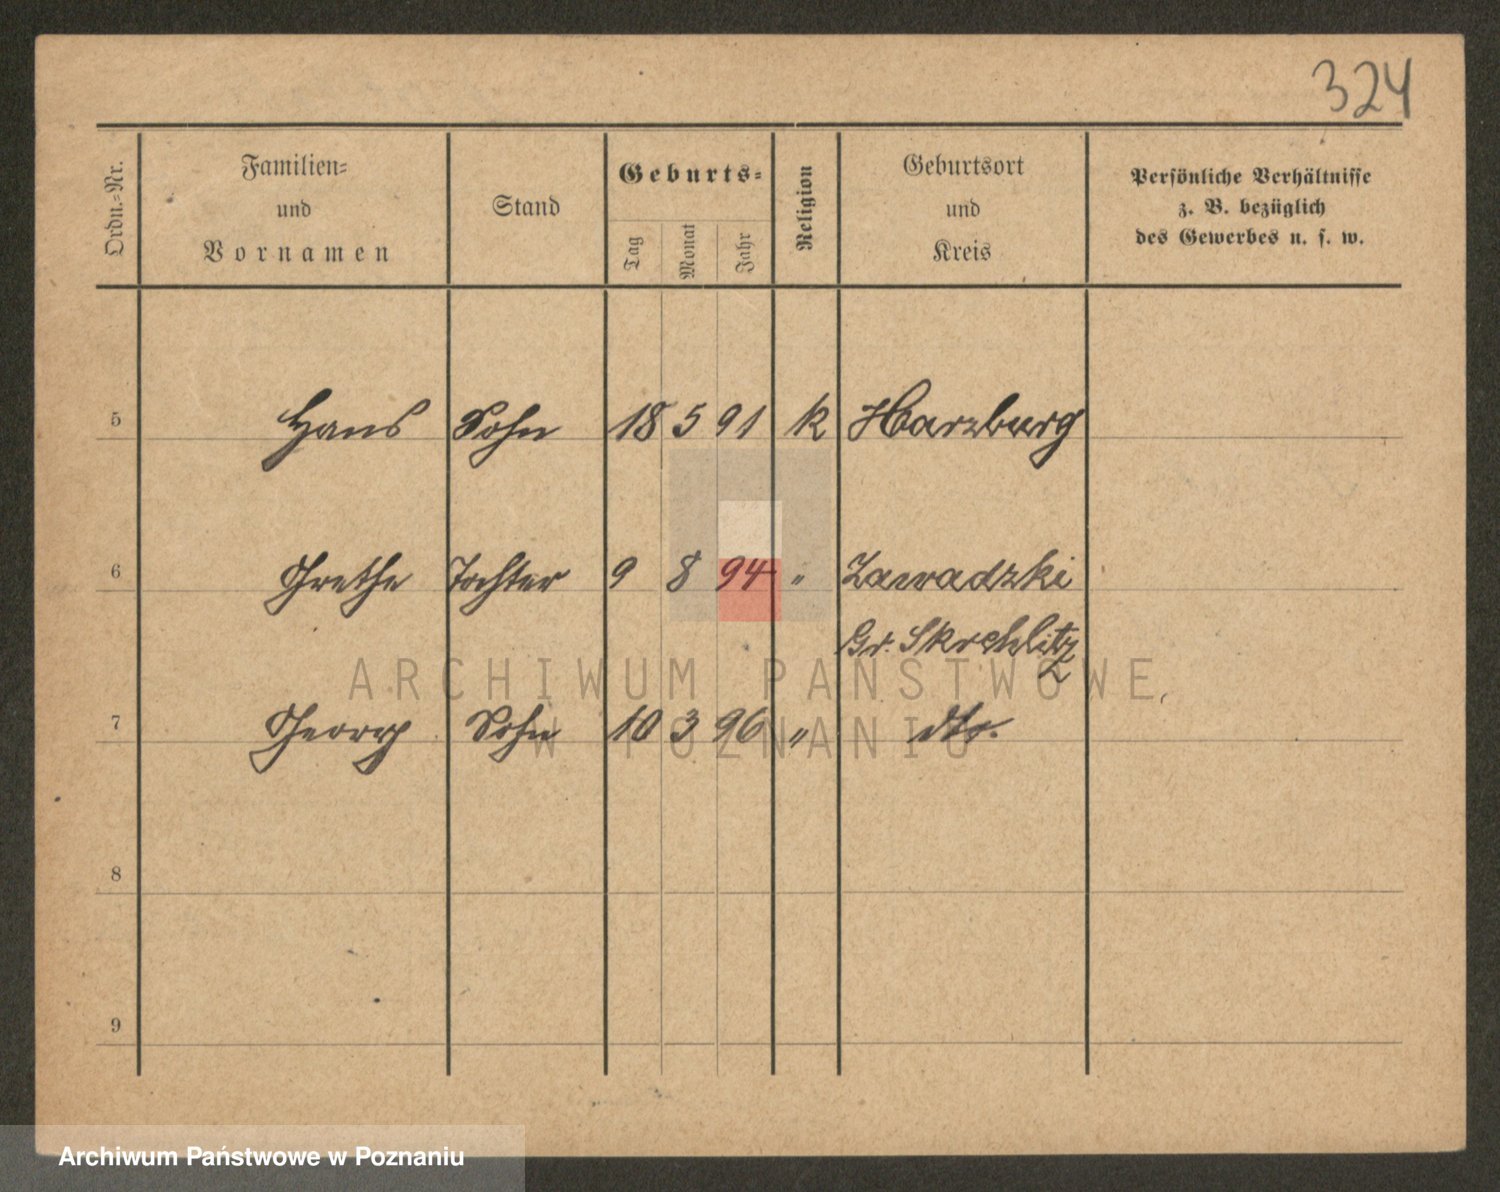 324
Ordn.-Nr. Familien- und Vornamen Stand Geburts- Tag Monat Jahr Religion Geburtsort und Kreis Persönliche Verhältnisse z. B. bezüglich des Gewerbes u. s. w.
5 Hans Sohn 18 5 91 k Harzburg
6 Grethe Tochter 9 8 94 " Zawadzki
Gr. Strehlitz
7 Georg Sohn 10 3 96 " dto.
8
9
ARCHIWUM PAŃSTWOWE
W POZNANIU
Archiwum Państwowe w Poznaniu